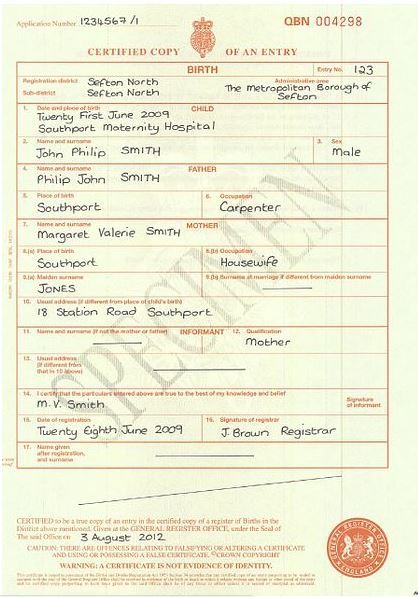 Application Number 1234567/1
QBN 004298
CERTIFIED COPY OF AN ENTRY
BIRTH
Entry No. 123
Registration district Sefton North
Administrative area
Sub-district Sefton North
The Metropolitan Borough of
Sefton
1. Date and place of birth CHILD
Twenty First June 2009
Southport Maternity Hospital
2. Name and surname
3. Sex
John Philip SMITH
Male
4. Name and surname FATHER
Philip John SMITH
5. Place of birth
6. Occupation
Southport
Carpenter
7. Name and surname MOTHER
Margaret Valerie SMITH
8.(a) Place of birth
8.(b) Occupation
Southport
Housewife
9.(a) Maiden surname
9.(b) Surname at marriage if different from maiden surname
JONES
10. Usual address (if different from place of child's birth)
18 Station Road Southport
11. Name and surname (if not the mother or father) INFORMANT 12. Qualification
Mother
13. Usual address
(if different from
that in 10 above)
14. I certify that the particulars entered above are true to the best of my knowledge and belief
M.V. Smith
Signature
of informant
15. Date of registration
16. Signature of registrar
Twenty Eighth June 2009
J Brown Registrar
17. Name given
after registration,
and surname
SPECIMEN
CERTIFIED to be a true copy of an entry in the certified copy of a register of Births in the
District above mentioned. Given at the GENERAL REGISTER OFFICE, under the Seal of
The said Office on 3 August 2012
CAUTION: THERE ARE OFFENCES RELATING TO FALSIFYING OR ALTERING A CERTIFICATE
AND USING OR POSSESSING A FALSE CERTIFICATE. ©CROWN COPYRIGHT
WARNING: A CERTIFICATE IS NOT EVIDENCE OF IDENTITY.
GENERAL REGISTER OFFICE
ENGLAND